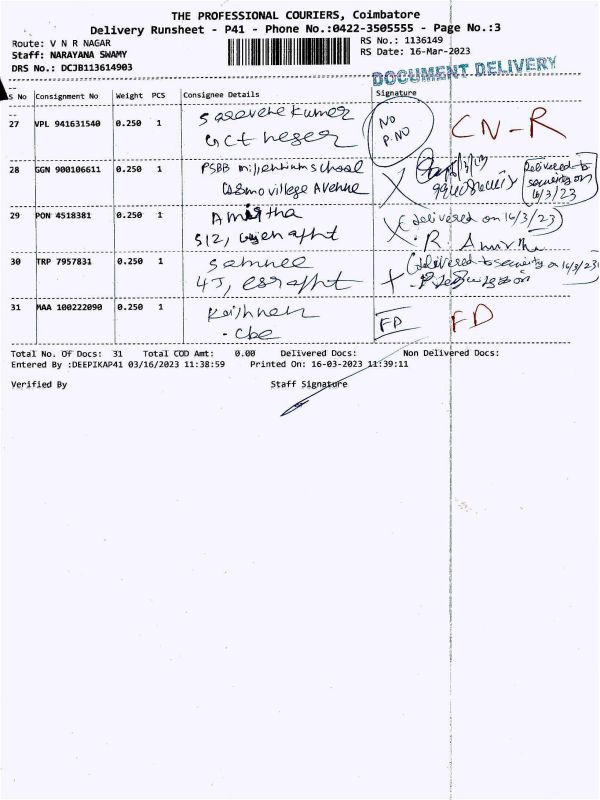 THE PROFESSIONAL COURIERS, Coimbatore
Delivery Runsheet - P41 - Phone No.:0422-3505555 - Page No.:3
Route: V N R NAGAR
RS No.: 1136149
Staff: NARAYANA SWAMY
RS Date: 16-Mar-2023
DRS No.: DCJB113614903
DOCUMENT DELIVERY
S No Consignment No Weight PCS Consignee Details Signature
27 VPL 941631540 0.250 1
NO
P.NO
CN-R
28 GGN 900106611 0.250 1 PSBB millenniumschool
Cosmovillege Avenue
Delivered to
security on
16/3/23
29 PON 4518381 0.250 1 Amirtha
(delivered on 16/3/23)
R. Amirtha
30 TRP 7957831 0.250 1
(delivered to security on 16/3/23)
31 MAA 100222090 0.250 1
- Cbe
FD
FD
Total No. Of Docs: 31 Total COD Amt: 0.00 Delivered Docs: Non Delivered Docs:
Entered By :DEEPIKAP41 03/16/2023 11:38:59 Printed On: 16-03-2023 11:39:11
Verified By Staff Signature